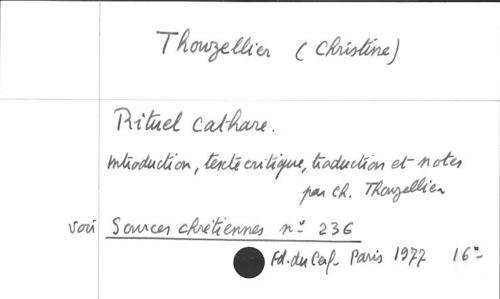 Thouzellier (Christine)
Rituel cathare.
Introduction, texte critique, traduction et notes
par Ch. Thouzellier
voir Sources chrétiennes n° 236
Ed. du Cerf Paris 1977 16°